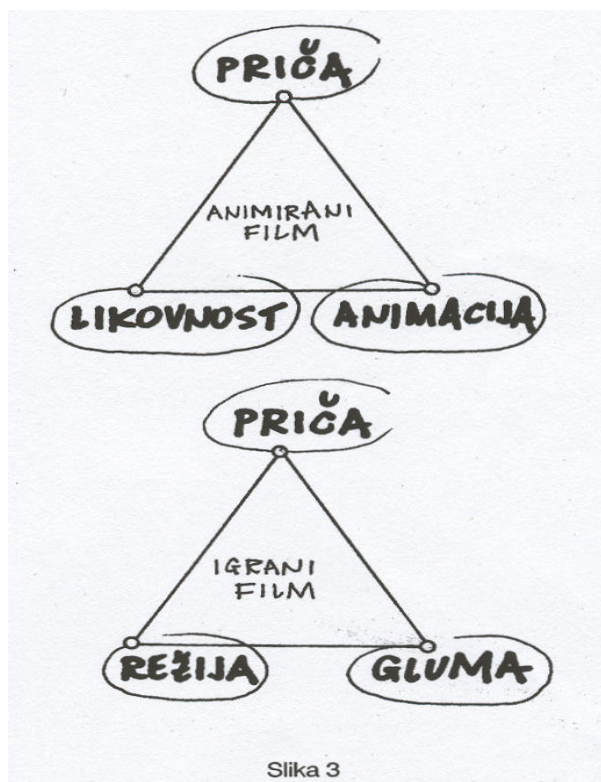 PRIČA
ANIMIRANI
FILM
LIKOVNOST ANIMACIJA
PRIČA
IGRANI
FILM
REŽIJA GLUMA
Slika 3